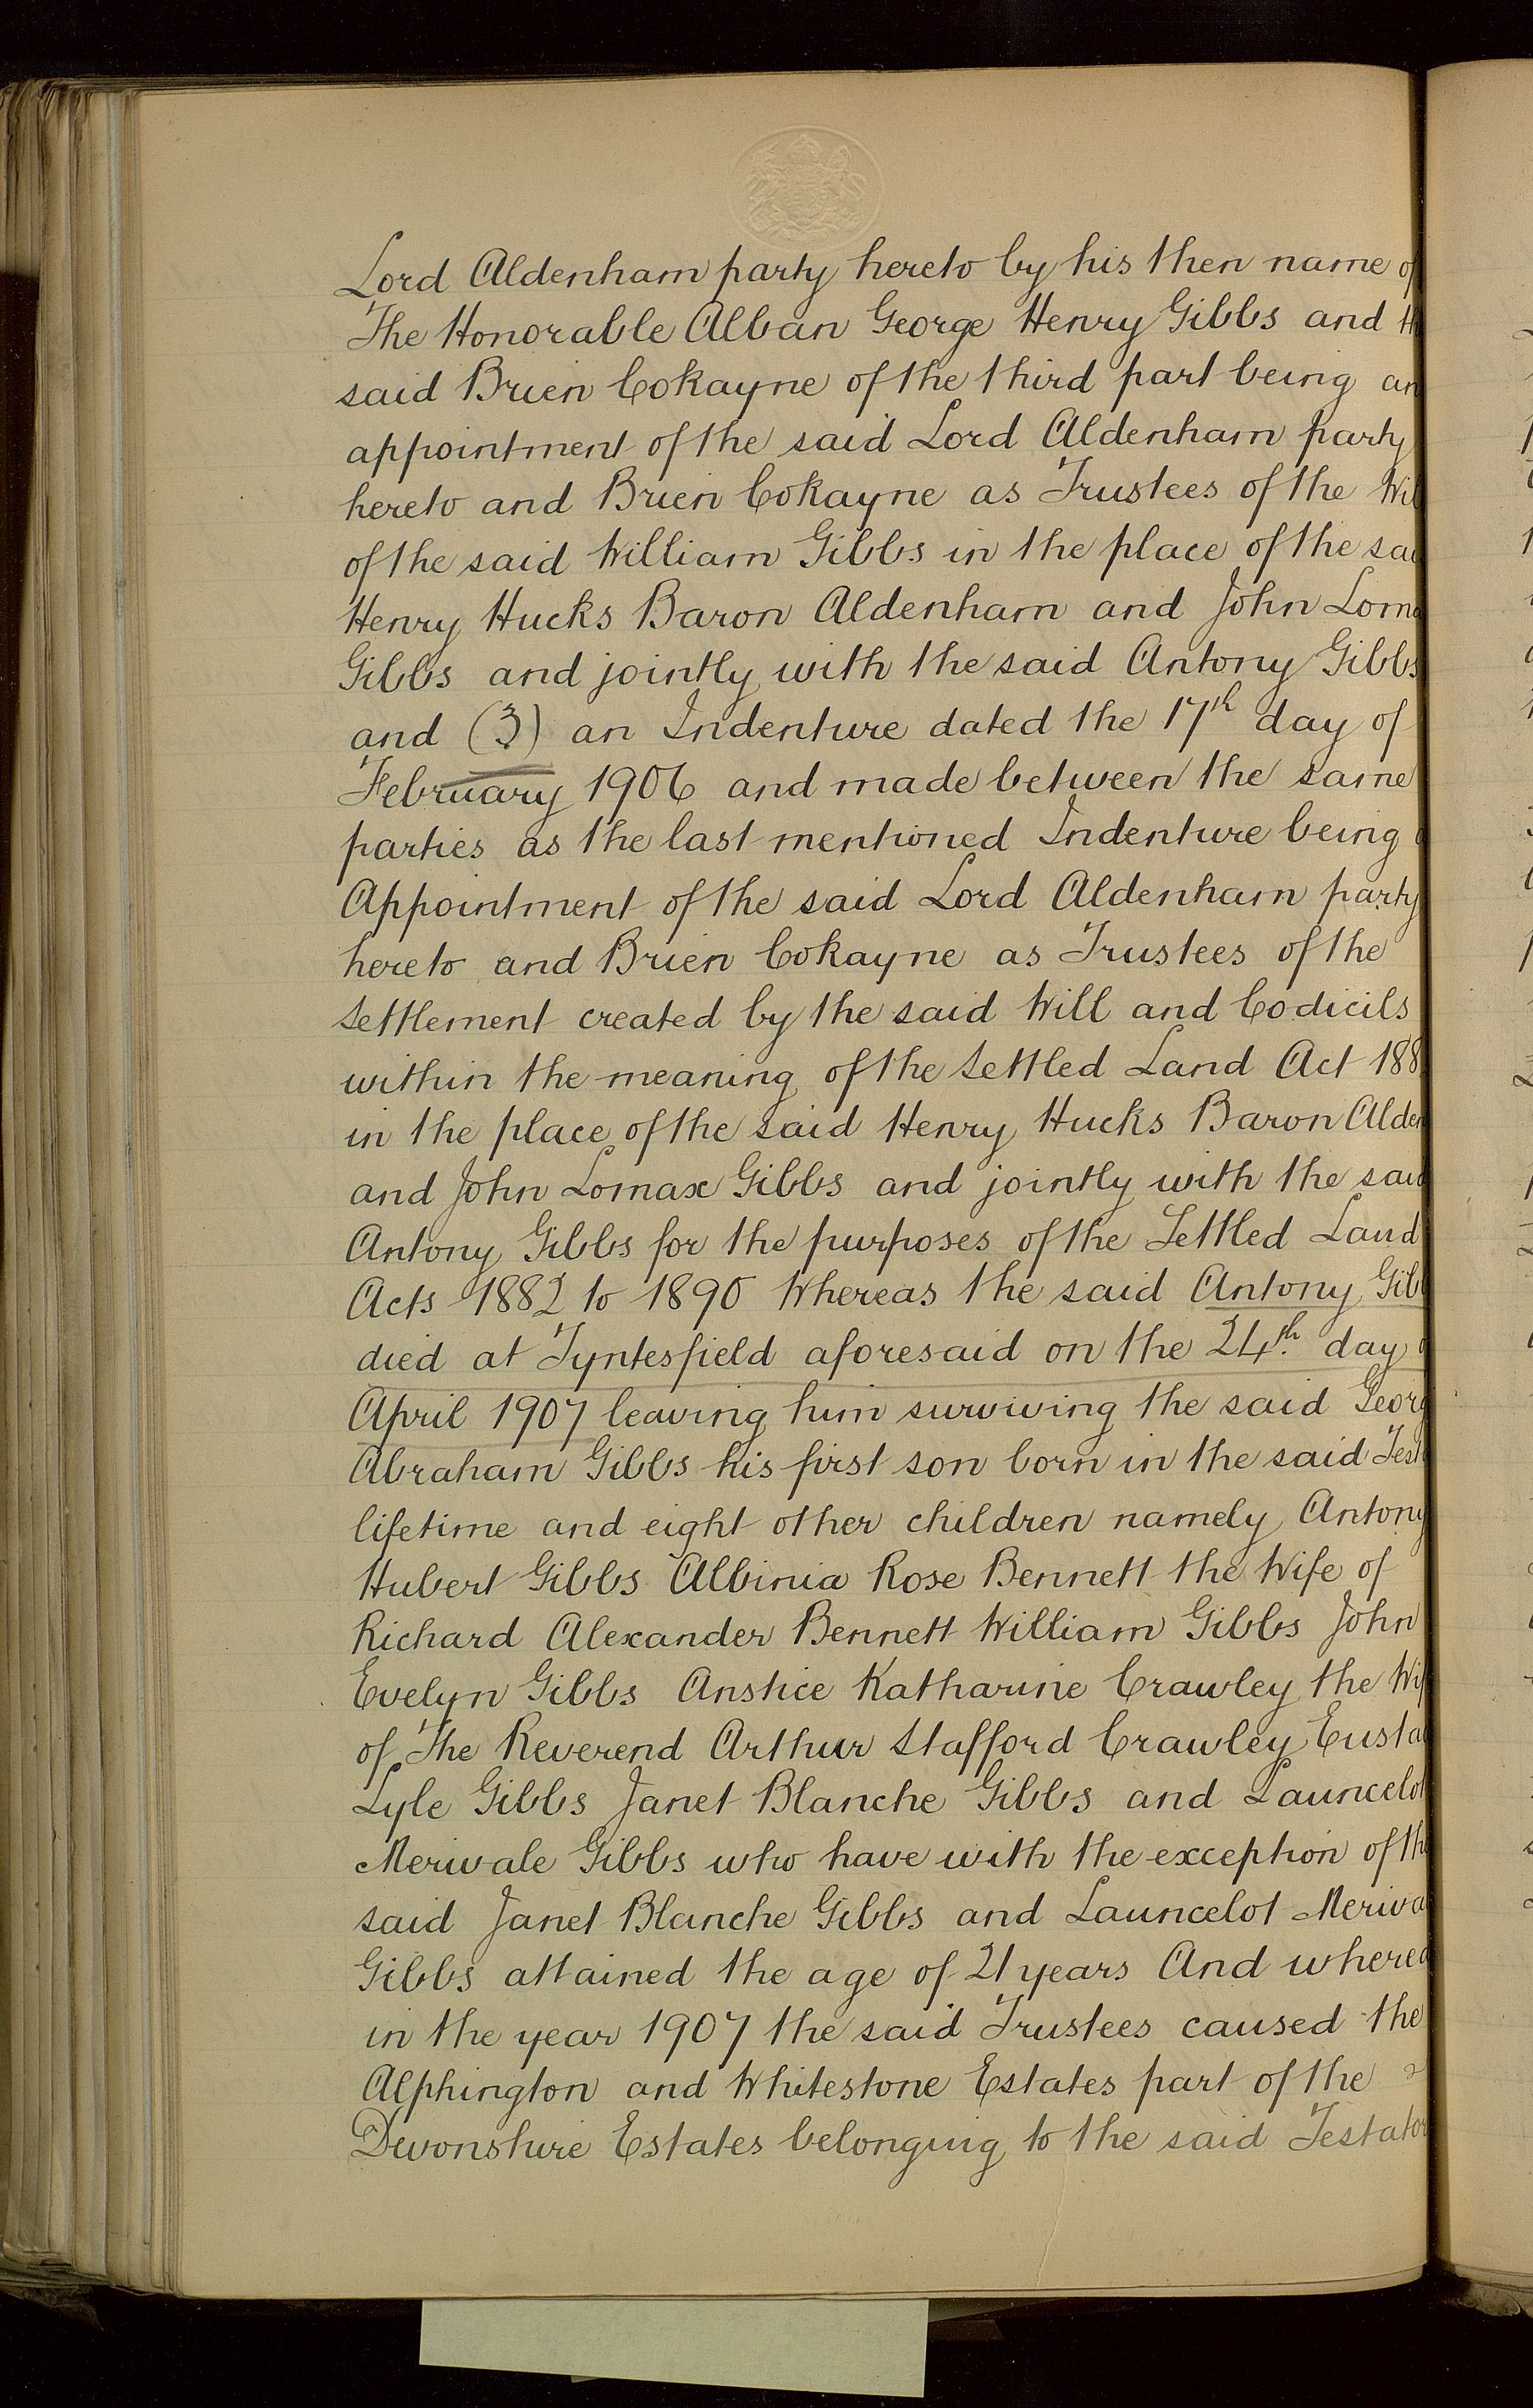 Lord Aldenham party hereto by his then name of
The Honorable Alban George Henry Gibbs and th
said Brien Cokayne of the third part being an
appointment of the said Lord Aldenham party
hereto and Brien Cokayne as Trustees of the Wil
of the said William Gibbs in the place of the sai
Henry Hucks Baron Aldenham and John Loma
Gibbs and jointly with the said Antony Gibbs
and (3) an Indenture dated the 17th day of
February 1906 and made between the same
parties as the last mentioned Indenture being
Appointment of the said Lord Aldenham party
hereto and Brien Cokayne as Trustees of the
settlement created by the said Will and Codicils
within the meaning of the Settled Land Act 188
in the place of the said Henry Hucks Baron Alden
and John Lomax Gibbs and jointly with the said
Antony Gibbs for the purposes of the Settled Land
Acts 1882 to 1890 Whereas the said Antony Gibb
died at Tyntesfield aforesaid on the 24th. day o
April 1907 leaving him surviving the said Georg
Abraham Gibbs his first son born in the said Testa
lifetime and eight other children namely Antony
Hubert Gibbs Albinia Rose Bennett the Wife of
Richard Alexander Bennett William Gibbs John
Evelyn Gibbs Anstice Katharine Crawley the Wif
of The Reverend Arthur Stafford Crawley Eustac
Lyle Gibbs Janet Blanche Gibbs and Launcelot
Merivale Gibbs who have with the exception of the
said Janet Blanche Gibbs and Launcelot Meriva
Gibbs attained the age of 21 years And wherea
in the year 1907 the said Trustees caused the
Alphington and Whitestone Estates part of the
Devonshire Estates belonging to the said Testator